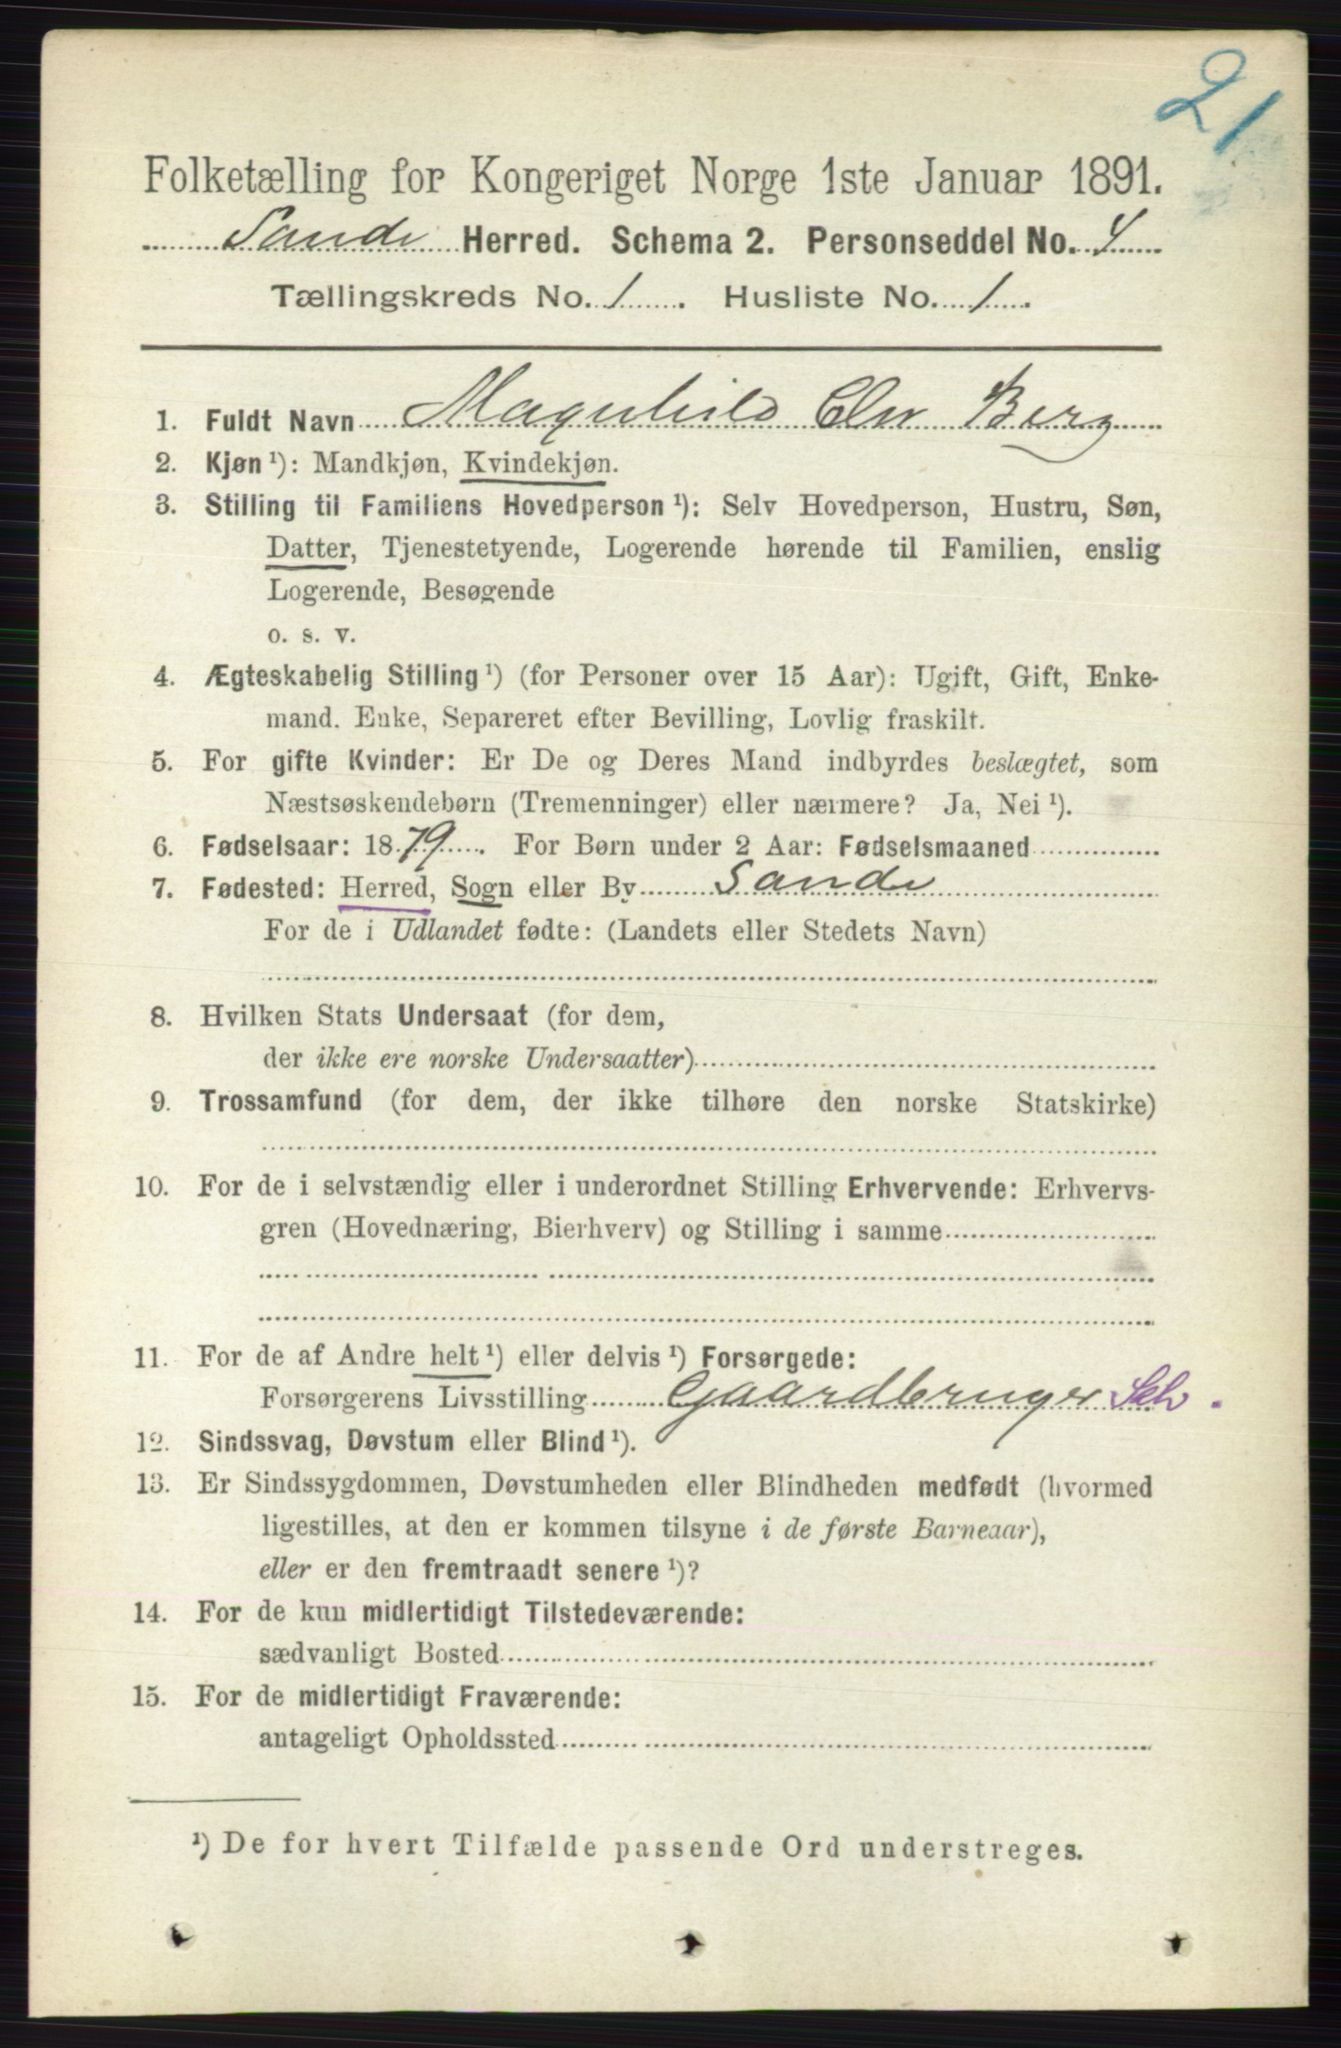 21
Folketælling for Kongeriget Norge 1ste Januar 1891.
Sande Herred. Schema 2. Personseddel No. 4
Tællingskreds No. 1. Husliste No. 1.
1. Fuldt Navn Magnhild Berg
2. Kjøn ¹): Mandkjøn, Kvindekjøn.
3. Stilling til Familiens Hovedperson ¹): Selv Hovedperson, Hustru, Søn,
Datter, Tjenestetyende, Logerende hørende til Familien, enslig
Logerende, Besøgende
o. s. v.
4. Ægteskabelig Stilling ¹) (for Personer over 15 Aar): Ugift, Gift, Enke-
mand. Enke, Separeret efter Bevilling, Lovlig fraskilt.
5. For gifte Kvinder: Er De og Deres Mand indbyrdes beslægtet, som
Næstsøskendebørn (Tremenninger) eller nærmere? Ja, Nei ¹).
6. Fødselsaar: 1879. For Børn under 2 Aar: Fødselsmaaned
7. Fødested: Herred, Sogn eller By Sande
For de i Udlandet fødte: (Landets eller Stedets Navn)
8. Hvilken Stats Undersaat (for dem,
der ikke ere norske Undersaatter)
9. Trossamfund (for dem, der ikke tilhøre den norske Statskirke)
10. For de i selvstændig eller i underordnet Stilling Erhvervende: Erhvervs-
gren (Hovednæring, Bierhverv) og Stilling i samme
11. For de af Andre helt ¹) eller delvis ¹) Forsørgede:
Forsørgerens Livsstilling Gaardbruger Selv.
12. Sindssvag, Døvstum eller Blind ¹).
13. Er Sindssygdommen, Døvstumheden eller Blindheden medfødt (hvormed
ligestilles, at den er kommen tilsyne i de første Barneaar),
eller er den fremtraadt senere ¹)?
14. For de kun midlertidigt Tilstedeværende:
sædvanligt Bosted
15. For de midlertidigt Fraværende:
antageligt Opholdssted
¹) De for hvert Tilfælde passende Ord understreges.